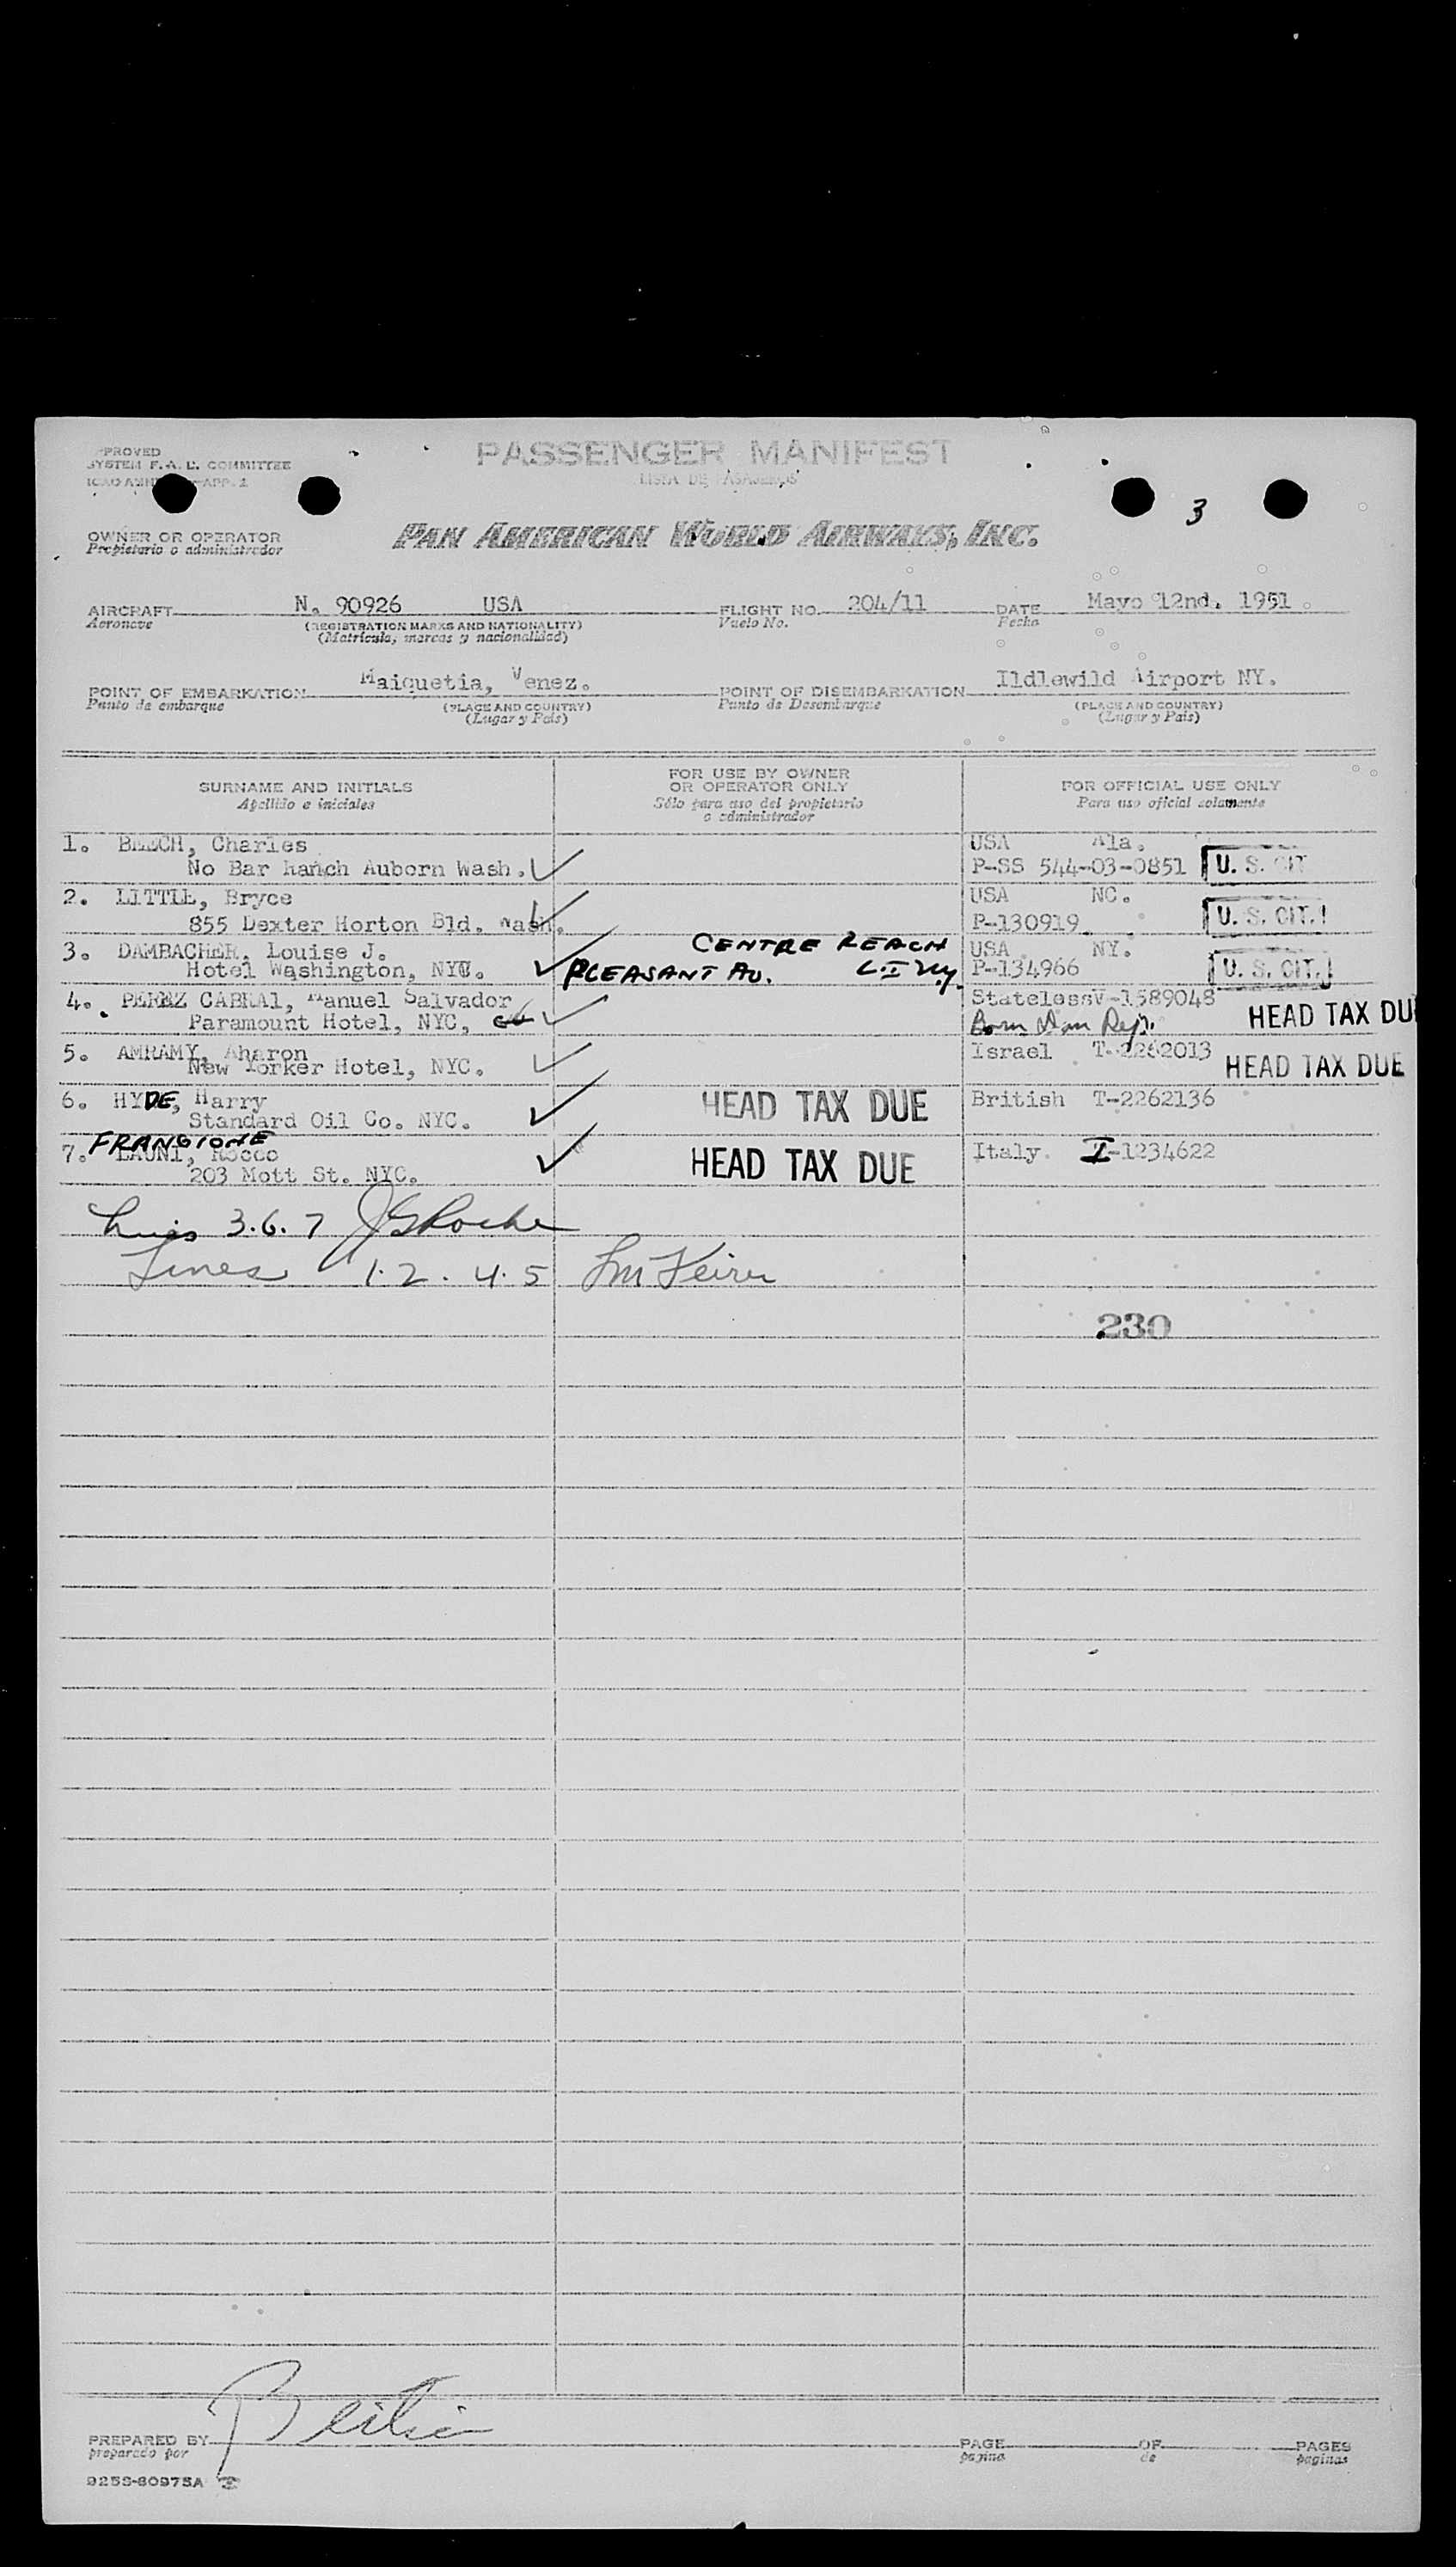 PROVED
SYSTEM F.A.L. COMMITTEE
APP. 2
PASSENGER MANIFEST
LISTA DE PASAJEROS
3
OWNER OR OPERATOR
Propietario o administrador
PAN AMERICAN WORLD AIRWAYS, INC.
AIRCRAFT N. 90926 USA FLIGHT NO. 204/11 DATE Mayo 12nd. 1951
Aeronave (REGISTRATION MARKS AND NATIONALITY) Vuelo No. Fecha
(Matrícula, marcas y nacionalidad)
POINT OF EMBARKATION Maiquetia, Venez. POINT OF DISEMBARKATION Ildlewild Airport NY.
Punto de embarque (PLACE AND COUNTRY) Punto de Desembarque (PLACE AND COUNTRY)
(Lugar y País) (Lugar y País)
SURNAME AND INITIALS FOR USE BY OWNER OR OPERATOR ONLY FOR OFFICIAL USE ONLY
Apellido e iniciales Sólo para uso del propietario o administrador Para uso oficial solamente
1. BEECH, Charles USA Ala.
No Bar Ranch Auborn Wash. P-SS 544-03-0851 U. S. CIT
2. LITTLE, Bryce USA NC.
855 Dexter Horton Bld. Wash. P-130919 U. S. CIT.
3. DAMBACHER, Louise J. CENTRE REACH USA NY.
Hotel Washington, NYC. PLEASANT AV. L.I NY. P-134966 U. S. CIT.
4. PEREZ CABRAl, Manuel Salvador StatelessV-1589048
Paramount Hotel, NYC, Born Dom Rep. HEAD TAX DU
5. AMRAMY, Aharon Israel T-2262013
New Yorker Hotel, NYC. HEAD TAX DUE
6. HYDE, Harry HEAD TAX DUE British T-2262136
Standard Oil Co. NYC.
FRANGIONE
7. LAUNI, Rocco HEAD TAX DUE Italy I-1234622
203 Mott St. NYC.
3. 6. 7
Lines 1. 2. 4. 5
230
PREPARED BY PAGE OF PAGES
preparado por pagina de paginas
925S-60975A